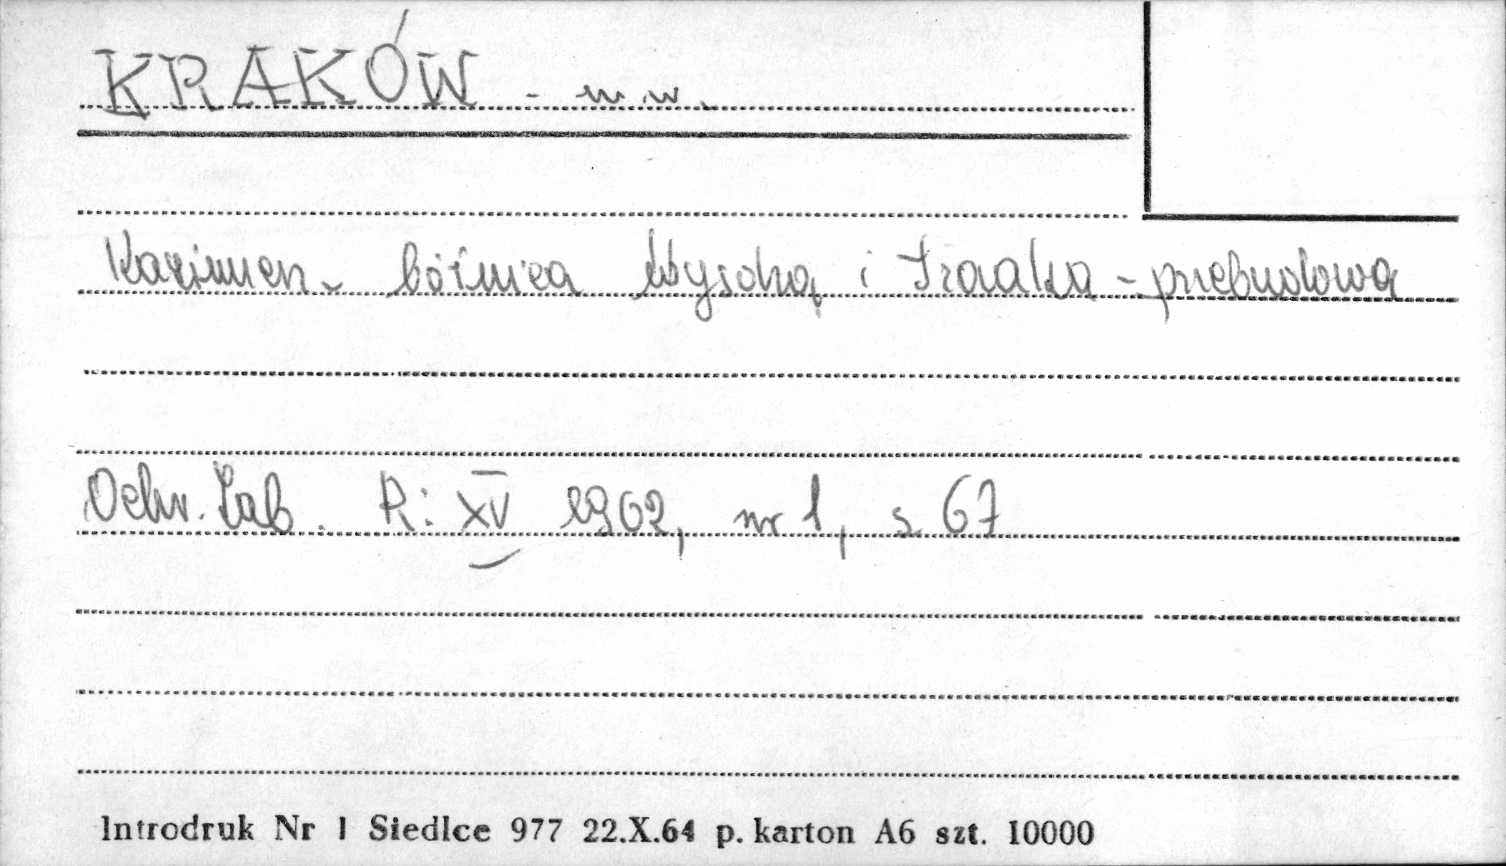 KRAKÓW - m.w.
Kazimierz - bóżnica Wysoka i Izaaka - przebudowa
Ochr. Zab. R: XV 1962, nr 1, s 67
Introdruk Nr 1 Siedlce 977 22.X.64 p. karton A6 szt. 10000